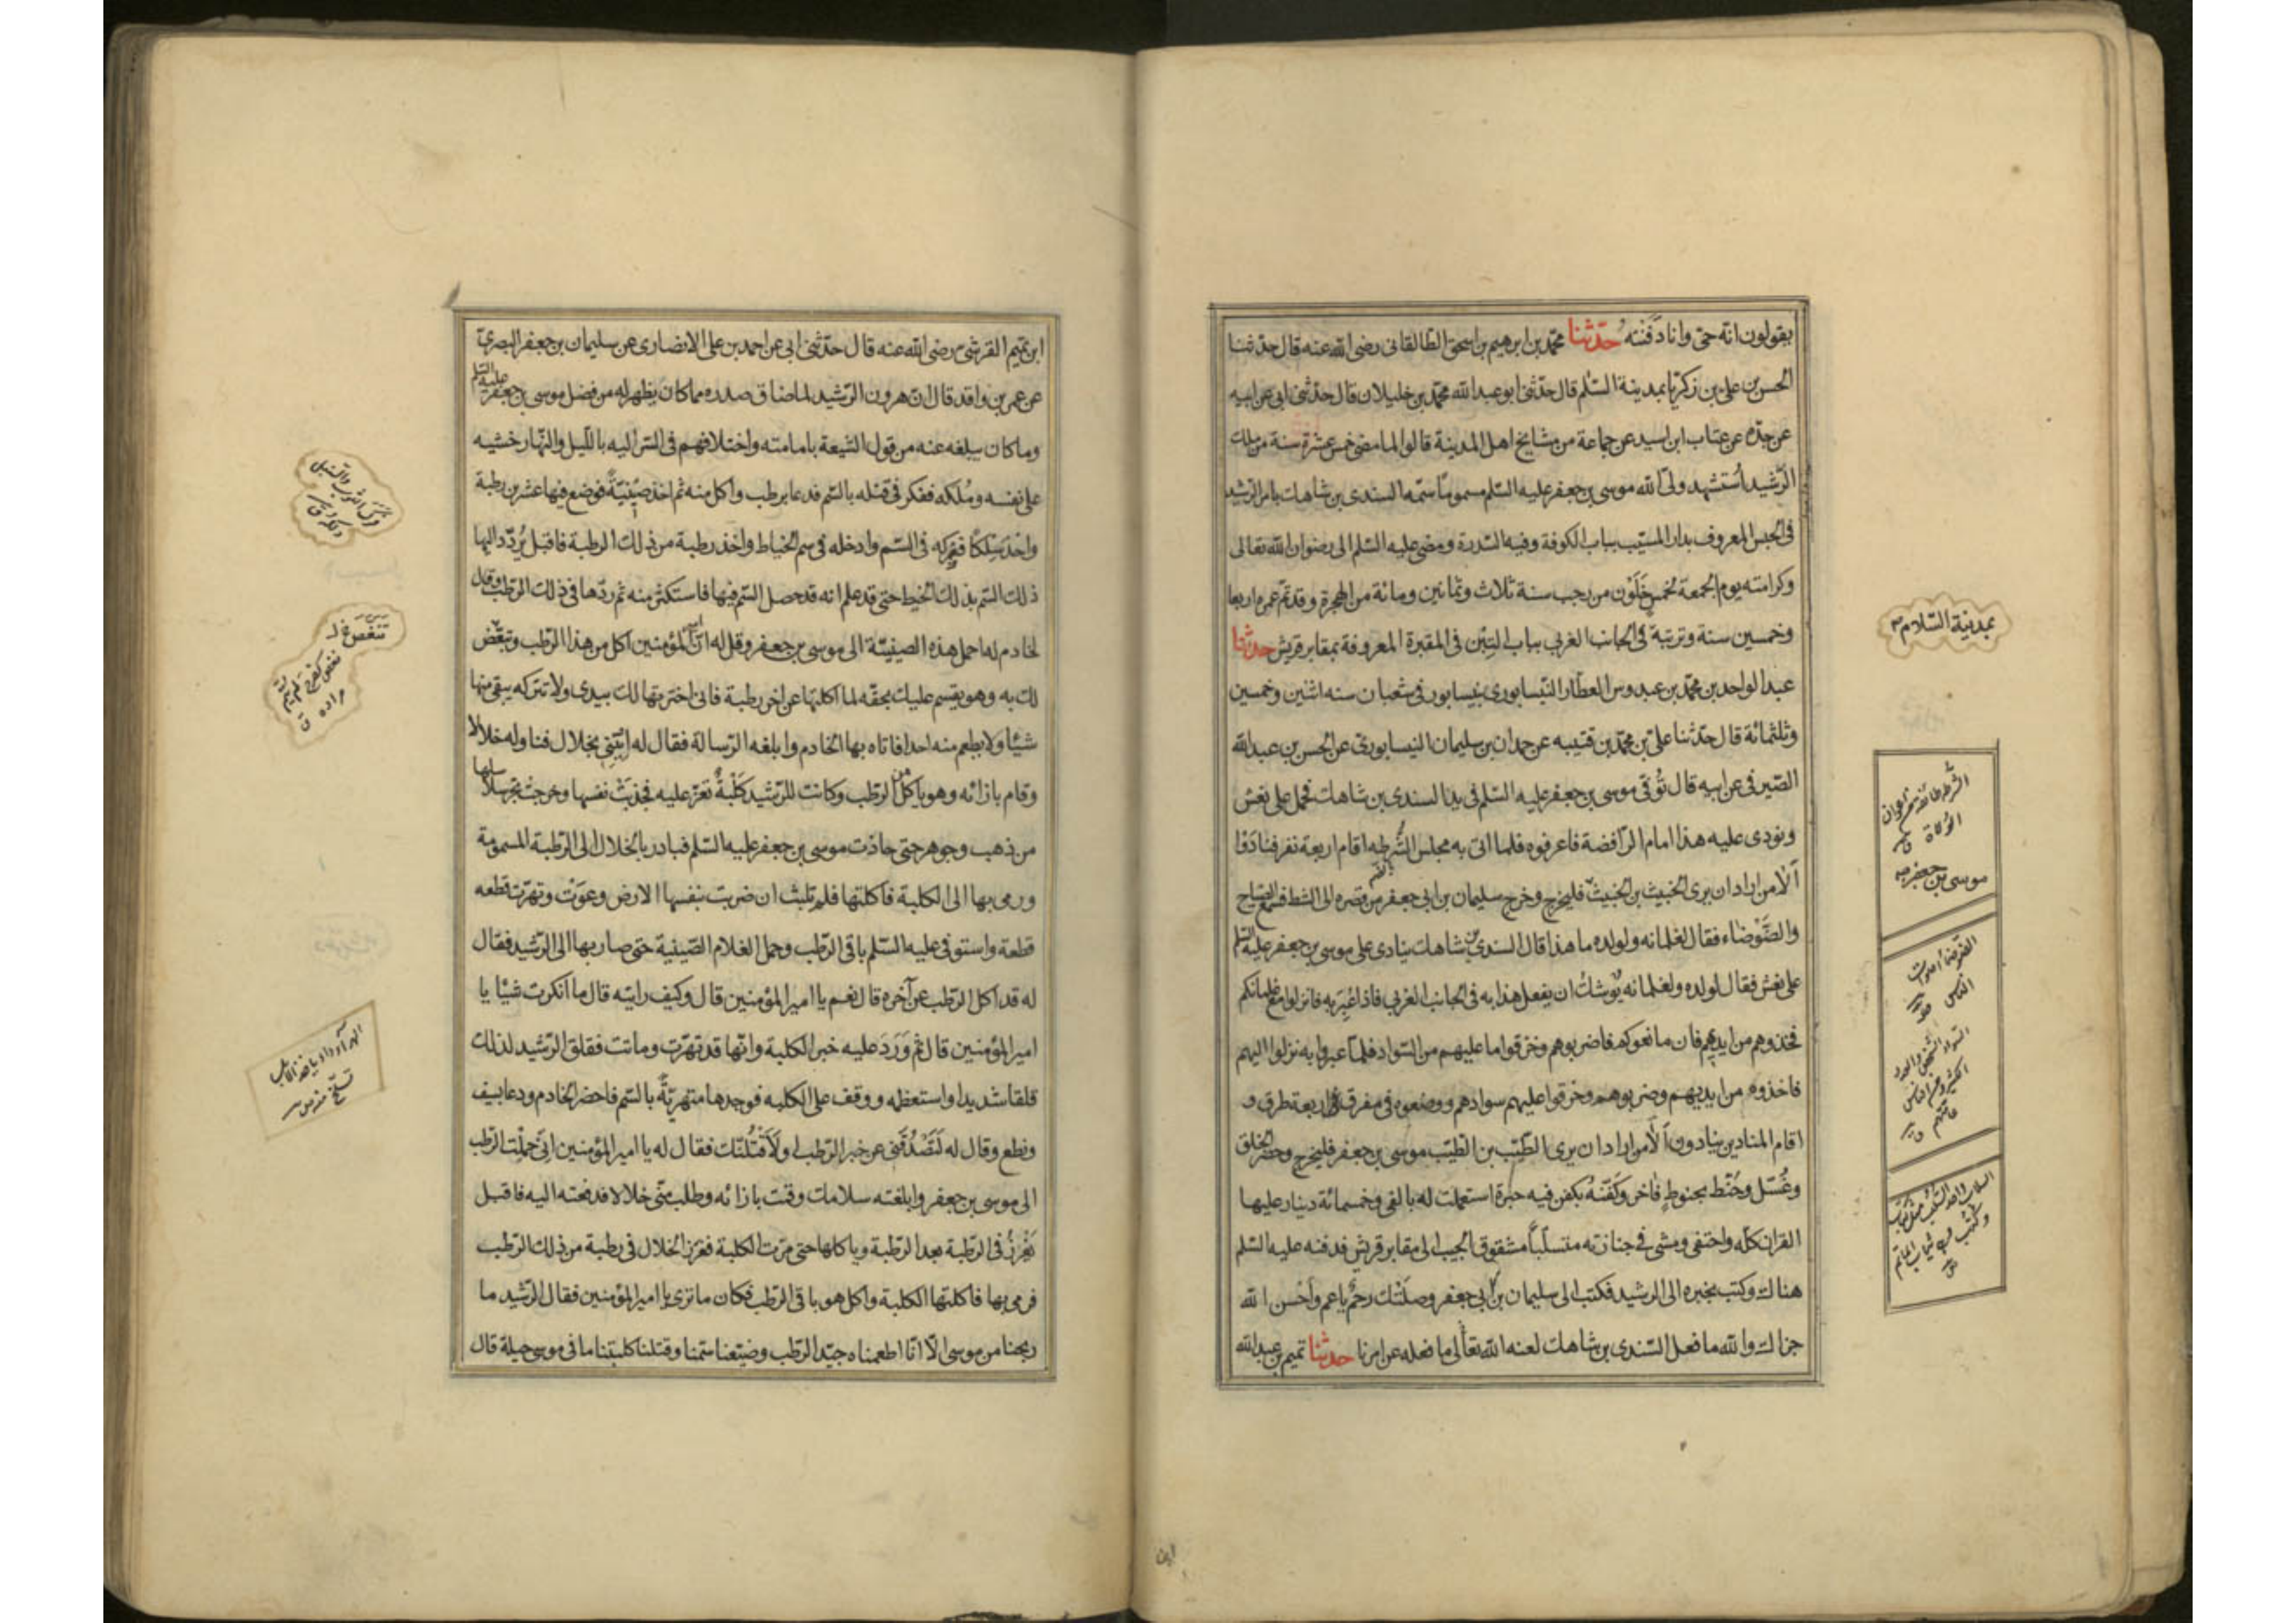 يقولون انه حتى وانا دفنته حدثنا محمد بن ابرهيم بن اسحق الطالقانى رضى الله عنه قال حدثنا
الحسن بن على بن زكريا بمدينة السلم قال حدثنى ابو عبد الله محمد بن خليلان قال حدثنى ابى عن ابيه
عن جده عن عتاب ابن اسيد عن جماعة من مشايخ اهل المدينة قالوا لما مضى خمس عشرة سنة من ملك
الرشيد استشهد ولى الله موسى بن جعفر عليه السلم مسموما سمه السندى بن شاهك بامر الرشيد
فى الحبس المعروف بدار المسيب بباب الكوفة وفيه السدرة ومضى عليه السلم الى رضوان الله تعالى
وكرامته يوم الجمعة لخمس خلون من رجب سنة ثلاث وثمانين ومائة من الهجرة وقد تم عمره اربعا
وخمسين سنة وتربته فى الجانب الغربى بباب التبن فى المقبرة المعروفة بمقابر قريش حدثنا
عبد الواحد بن محمد بن عبدوس العطار النيسابورى بنيسابور فى شعبان سنه اثنين وخمسين
وثلثمائة قال حدثنا على بن محمد بن قتيبه عن حمدان بن سليمان النيسابورى عن الحسن بن عبد الله
الصيرفى عن ابيه قال توفى موسى بن جعفر عليه السلم فى يد السندى بن شاهك فحمل على نعش
ونودى عليه هذا امام الرافضة فاعرفوه فلما اتى به مجلس الشرطه اقام اربعة نفر فنادوا
الا من اراد ان يرى الخبيث بن الخبيث فليخرج وخرج سليمان بن ابى جعفر من قصره الى الشط فسمع الصياح
والضوضاء فقال لغلمانه ولولده ما هذا قال السندى بن شاهك ينادى على موسى بن جعفر عليه السلم
على نعش فقال لولده ولغلمانه يوشك ان يفعل هذا به فى الجانب الغربى فاذا عبر به فانزلوا مع غلمانكم
فخذوهم من ايديهم فان مانعوكم فاضربوهم وخرقوا ما عليهم من السواد فلما عبروا به نزلوا اليهم
فاخذوه من ايديهم وضربوهم وخرقوا عليهم سوادهم ووضعوه فى مفرق اربعة طرق و
اقام المنادين ينادون الا من اراد ان يرى الطيب بن الطيب موسى بن جعفر فليخرج وحضر الخلق
وغسل وحنط بحنوط فاخر وكفنه بكفن فيه حبرة استعملت له بالفى وخمسمائة دينار عليها
القران كله واحتفى ومشى فى جنازته متسلبا مشقوق الجيب الى مقابر قريش فدفنه عليه السلم
هناك وكتب بخبره الى الرشيد فكتب الى سليمان بن ابى جعفر وصلتك رحم يا عم واحسن الله
جزاك والله ما فعل السندى بن شاهك لعنه الله تعالى ما فعله عن امرنا حدثنا تميم بن عبد الله
بمدينة السلام
موسى بن جعفر
ابن
ابن تميم القرشى رضى الله عنه قال حدثنى ابى عن احمد بن على الانصارى عن سليمان بن جعفر البصرى
عن عمر بن واقد قال ان هرون الرشيد لما ضاق صدره مما كان يظهر له من فضل موسى بن جعفر عليه السلم
وما كان يبلغه عنه من قول الشيعة بامامته واختلافهم فى السر اليه بالليل والنهار خشيه
على نفسه وملكه ففكر فى قتله بالسم فدعا برطب واكل منه ثم اخذ صينية فوضع فيها عشرين رطبة
واخذ سلكا فعركه فى السم وادخله فى سم الخياط واخذ رطبة من ذلك الرطبة فاقبل يردد اليها
ذلك السم بذلك الخيط حتى قد علم انه قد حصل السم فيها فاستكثر منه ثم ردها فى ذلك الرطب وقال
لخادم له احمل هذه الصينية الى موسى بن جعفر وقل له ان امير المؤمنين اكل من هذا الرطب وتنغص
لك به وهو يقسم عليك بحقه لما اكلتها عن اخر رطبة فانى اخترتها لك بيدى ولا تتركه يبقى منها
شيئا ولا يطعم منه احدا فاتاه بها الخادم وابلغه الرسالة فقال له ائتنى بخلال فناوله خلالا
وقام بازائه وهو ياكل من الرطب وكانت للرشيد كلبة تعز عليه فجذبت نفسها وخرجت تجر سلاسلها
من ذهب وجوهر حتى حاذت موسى بن جعفر عليه السلم فبادر بالخلال الى الرطبة المسمومة
ورمى بها الى الكلبة فاكلتها فلم تلبث ان ضربت بنفسها الارض وعوت وتهرت قطعه
قطعة واستوفى عليه السلم باقى الرطب وحمل الغلام الصينية حتى صار بها الى الرشيد فقال
له قد اكل الرطب عن آخره قال نعم يا امير المؤمنين قال وكيف رايته قال ما انكرت شيئا يا
امير المؤمنين قال ثم ورد عليه خبر الكلبة وانها قد تهرت وماتت فقلق الرشيد لذلك
قلقا شديدا واستعظمه ووقف على الكلبه فوجدها متهرئة بالسم فاحضر الخادم ودعا بسيف
ونطع وقال له لتصدقنى عن خبر الرطب او لاقتلنك فقال له يا امير المؤمنين انى حملت الرطب
الى موسى بن جعفر وابلغته سلامك وقمت بازائه وطلب منى خلالا فدفعته اليه فاقبل
يغرز فى الرطبة بعد الرطبة وياكلها حتى مرت الكلبة فغرز الخلال فى رطبة من ذلك الرطب
فرمى بها فاكلتها الكلبة واكل هو باقى الرطب فكان ما ترى يا امير المؤمنين فقال الرشيد ما
ربحنا من موسى الا انا اطعمناه جيد الرطب وضيعنا سمنا وقتلنا كلبتنا ما فى موسى حيلة قال